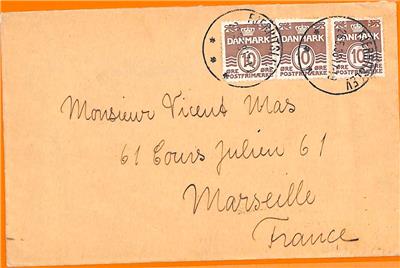 DANMARK DANMARK DANMARK
10 10 10
ØRE ØRE ØRE ØRE ØRE ØRE
POSTFRIMÆRKE POSTFRIMÆRKE POSTFRIMÆRKE
Monsieur Vicent Mas
61 Cours Julien 61
Marseille
France